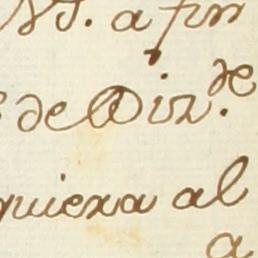 Nd. a fin
de Diz.de
quiera al
a